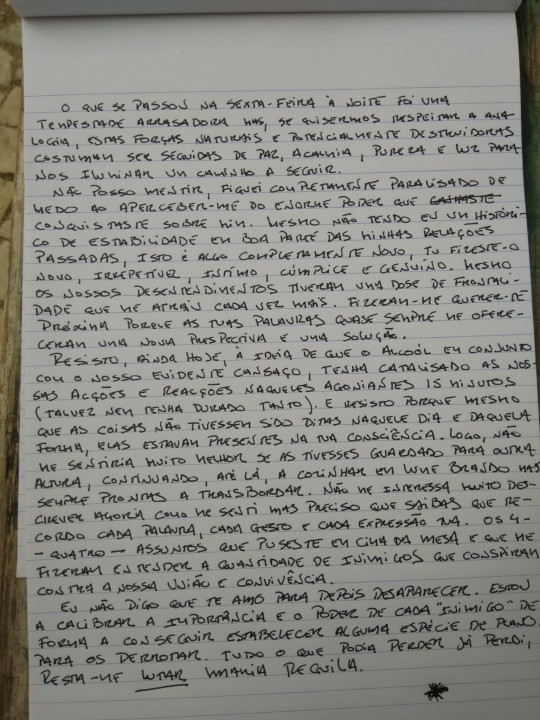 O QUE SE PASSOU NA SEXTA-FEIRA À NOITE FOI UMA
TEMPESTADE ARRASADORA MAS, SE QUISERMOS RESPEITAR A ANA
LOGIA, ESTAS FORÇAS NATURAIS E POTENCIALMENTE DESTRUIDORAS
COSTUMAM SER SEGUIDAS DE PAZ, ACALMIA, PUREZA E LUZ PARA
NOS ILUMINAR UM CAMINHO A SEGUIR.
NÃO POSSO MENTIR, FIQUEI COMPLETAMENTE PARALISADO DE
MEDO AO APERCEBER-ME DO ENORME PODER QUE GANHASTE
CONQUISTASTE SOBRE MIM. MESMO NÃO TENDO EU UM HISTÓRI-
CO DE ESTABILIDADE EM BOA PARTE DAS MINHAS RELAÇÕES
PASSADAS, ISTO É ALGO COMPLETAMENTE NOVO, TU FIZESTE-O
NOVO, IRREPETÍVEL, INTIMO, CÚMPLICE E GENUÍNO. MESMO
OS NOSSOS DESENTENDIMENTOS TIVERAM UMA DOSE DE FRONTALI-
DADE QUE ME ATRAIU CADA VEZ MAIS. FIZERAM-ME QUERER-TE
PRÓXIMA PORQUE AS TUAS PALAVRAS QUASE SEMPRE ME OFERE-
CERAM UMA NOVA PRESPECTIVA E UMA SOLUÇÃO.
RESISTO, AINDA HOJE, À IDEIA DE QUE O ALCOÓL EM CONJUNTO
COM O NOSSO EVIDENTE CANSAÇO, TENHA CATALISADO AS NOS-
SAS ACÇÕES E REACÇÕES NAQUELES AGONIANTES 15 MINUTOS
(TALVEZ NEM TENHA DURADO TANTO). E RESISTO PORQUE MESMO
QUE AS COISAS NÃO TIVESSEM SIDO DITAS NAQUELE DIA E DAQUELA
FORMA, ELAS ESTAVAM PRESENTES NA TUA CONSCIÊNCIA. LOGO, NÃO
ME SENTIRIA MUITO MELHOR SE AS TIVESSES GUARDADO PARA OUTRA
ALTURA, CONTINUANDO, ATÉ LÁ, A COZINHAR EM LUME BRANDO MAS
SEMPRE PRONTAS A TRANSBORDAR. NÃO ME INTERESSA MUITO DES-
CREVER AGORA COMO ME SENTI MAS PRECISO QUE SAIBAS QUE RE-
CORDO CADA PALAVRA, CADA GESTO E CADA EXPRESSÃO TUA. OS 4-
- QUATRO - ASSUNTOS QUE PUSESTE EM CIMA DA MESA E QUE ME
FIZERAM ENTENDER A QUANTIDADE DE INIMIGOS QUE CONSPIRAM
CONTRA A NOSSA UNIÃO E CONVIVÊNCIA.
EU NÃO DIGO QUE TE AMO PARA DEPOIS DESAPARECER. ESTOU
A CALIBRAR A IMPORTÂNCIA E O PODER DE CADA "INIMIGO" DE
FORMA A CONSEGUIR ESTABELECER ALGUMA ESPÉCIE DE PLANO
PARA OS DERROTAR. TUDO O QUE PODIA PERDER JÁ PERDI,
RESTA-ME LUTAR MINHA REGUILA.